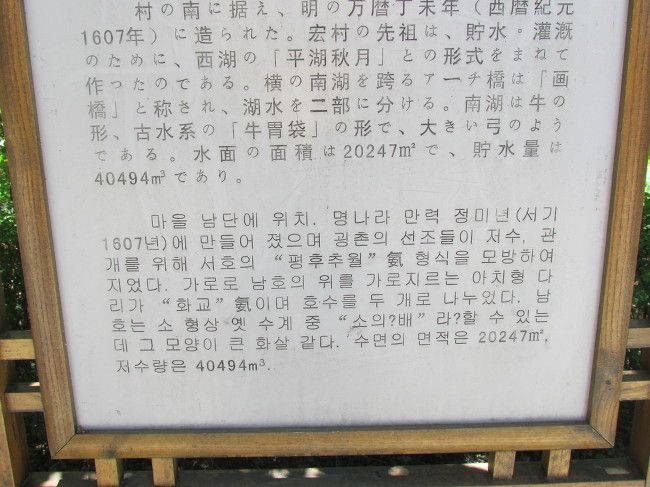 村の南に据え、明の万暦丁未年(西暦紀元
1607年)に造られた。宏村の先祖は、貯水・灌漑
のために、西湖の「平湖秋月」との形式をまねて
作ったのである。横の南湖を跨るアーチ橋は「画
橋」と称され、湖水を二部に分ける。南湖は牛の
形、古水系の「牛胃袋」の形で、大きい弓のよう
である。水面の面積は20247㎡で、貯水量は
40494m³であり。
마을 남단에 위치. 명나라 만력 정미년(서기
1607년)에 만들어 졌으며 굉촌의 선조들이 저수, 관
개를 위해 서호의 “평후추월”氨 형식을 모방하여
지었다. 가로로 남호의 위를 가로지르는 아치형 다
리가 “화교”氨이며 호수를 두 개로 나누었다. 남
호는 소 형상 옛 수계 중 “소의?배” 라?할 수 있는
데 그 모양이 큰 화살 같다. 수면의 면적은 20247㎡,
저수량은 40494m³.